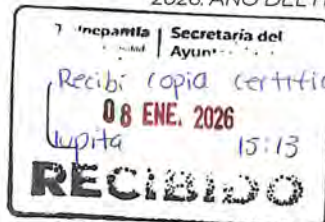 2026. AÑO DEL H
Secretaría del
Recibí copia certific
08 ENE. 2026
lupita 15:13
RECIBIDO